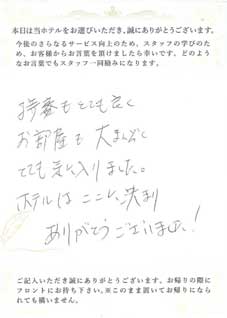 本日は当ホテルをお選びいただき、誠にありがとうございます。
今後のさらなるサービス向上のため、スタッフの学びのため、お客様からお言葉を頂けましたら幸いです。どのようなお言葉でもスタッフ一同励みになります。
接客もとても良く
お部屋も大まんぞく
とても気に入りました。
ホテルはここに決まり
ありがとうございました!
ご記入いただき誠にありがとうございます。お帰りの際にフロントにお持ち下さい。※このまま置いてお帰りになられても構いません。